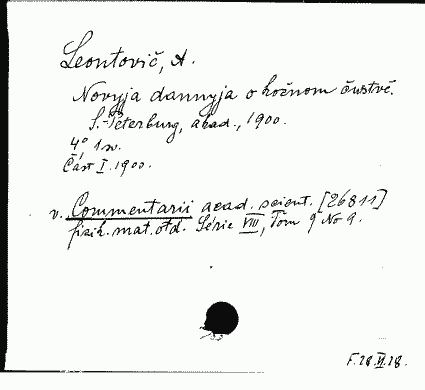 Leontovič, A.
Novyja dannyja o kožnom čustvě.
S.-Peterburg, akad., 1900.
4° 1 sv.
Část I. 1900.
v. Commentarii acad. scient. [26811]
fizik. mat. otd. Série VIII, Tom 9 No 9.
F.28.VI.28.